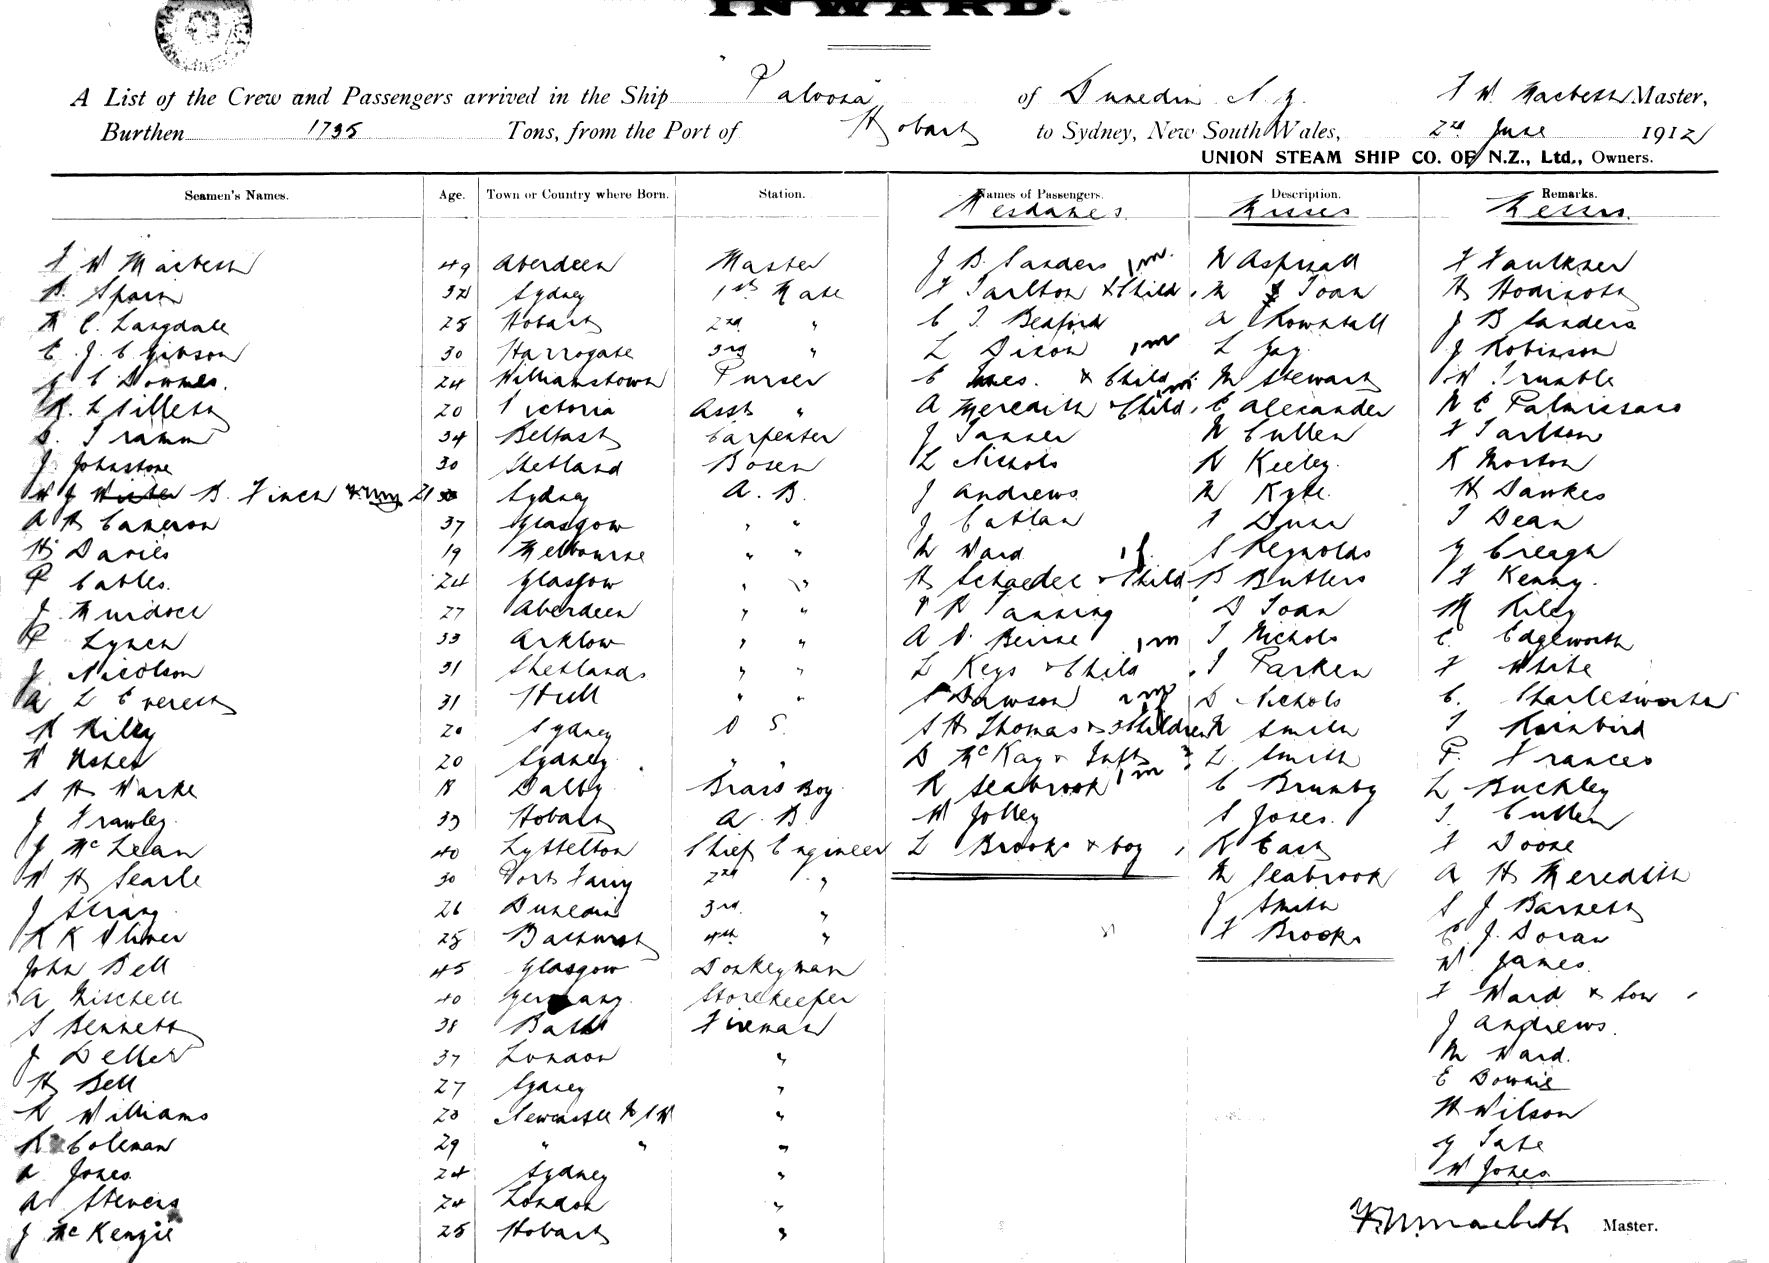 INWARD.
A List of the Crew and Passengers arrived in the Ship Paloona of Dunedin N.Z. F W Macbeth Master,
Burthen 1735 Tons, from the Port of Hobart to Sydney, New South Wales, 2nd June 1912
UNION STEAM SHIP CO. OF N.Z., Ltd., Owners.
Seamen's Names. Age. Town or Country where Born. Station. Names of Passengers. Description. Remarks.
Mesdames. Misses Messrs.
F W Macbeth 49 Aberdeen Master J B Sanders 1m. N Aspinall F Faulkner
B. Spain 32 Sydney 1st Mate F Tarlton & Child. M Toan H Hodinott
M C. Langdale 25 Hobart 2nd " C T. Beaford A Rownhall J B Sanders
E. J. C Gibson 30 Harrogate 3rd " L Dixon 1m L Jay J Robinson
G C Downes. 24 Williamstown Purser C Innes. & Child 1m. M Stewart W Trumble
R. L Sillett 20 Victoria Asst " A Meredith & Child. E Alexander N E Palmissano
S. Tramm 34 Belfast Carpenter J Tanner N Cullen F Tarlton
J. Johnstone 30 Shetland Bosen L Nichols N Keeley. R Morton
W J Winter B. Finch 21 30 Sydney A. B. J Andrews M Kyte. H Dawkes
A H Cameron 37 Glasgow " " J Catlan F Dunn T Dean
H Davies 19 Melbourne " " M Ward 1f. S Reynolds G Creagh
P Cables. 24 Glasgow " " H Schaedel & Child B Butlers F Kenny.
J. Murdoch 27 Aberdeen " " P R Tanning D Toan M Riley
P Lynch 33 Arklow " " A O. Beirne 1m T Nichols C. Edgeworth
J. Nicolson 31 Shetlands " " L Keys & Child. I Parker F White
A L Everest 31 Hull " " S Dawson D Nichols C. Charlesworth
R Riley 20 Sydney O S. S H Thomas & 3 Children R Smith T Rainbird
W Usher 20 Sydney. " " D McKay & Inft L. Smith P. Frances
S H Warke 18 Dalby. Brass Boy. R Seabrook 1m C Brumby L Buckley
J Frawley. 39 Hobart A. B. W Jolley S Jones. T. Cullen
J McLean 40 Lyttelton Chief Engineer L Brooks & boy R East F Doone
W H Searle 30 Port Fairy 2nd " M Seabrook A H Meredith
J Strang. 26 Dunedin 3rd. " J Smith S J Barnett
R K Oliver 25 Bathurst 4th " F Brooks E J. Doran
John Bell 45 Glasgow Donkeyman W. James.
A Mitchell 40 Germany. Storekeeper F Ward & Son
S Bennett 38 Bath Fireman J Andrews.
J Deller 37 London " M Ward.
H Bell 27 Sydney " E Downie
R Williams 20 Newcastle N S W " H Wilson
R Coleman 29 " " " G Tate
A Jones. 24 Sydney " W Jones
A Stevens 24 London "
J McKenzie 25 Hobart "
F. W. Macbeth Master.